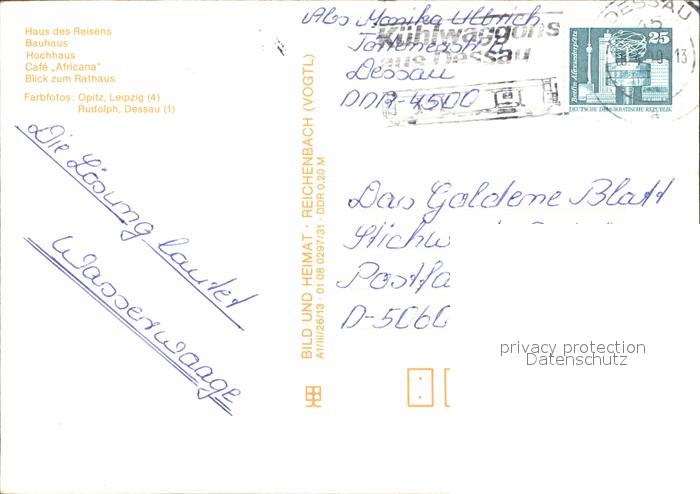 Haus des Reisens
Bauhaus
Hochhaus
Café „Africana"
Blick zum Rathaus
Farbfotos: Opitz, Leipzig (4)
Rudolph, Dessau (1)
Die Lösung lautet
Wasserwaage
BILD UND HEIMAT · REICHENBACH (VOGTL)
A1/III/26/13 · 01 08 0297/31 · DDR 0,20 M
Abs Monika Ulbrich
Dessau
DDR-4500
Kühlwaggons
aus Dessau
DESSAU
45
13
a
25
Berlin, Alexanderplatz
DEUTSCHE DEMOKRATISCHE REPUBLIK
Das Goldene Blatt
Stichw
Postfa
D-5060
privacy protection
Datenschutz